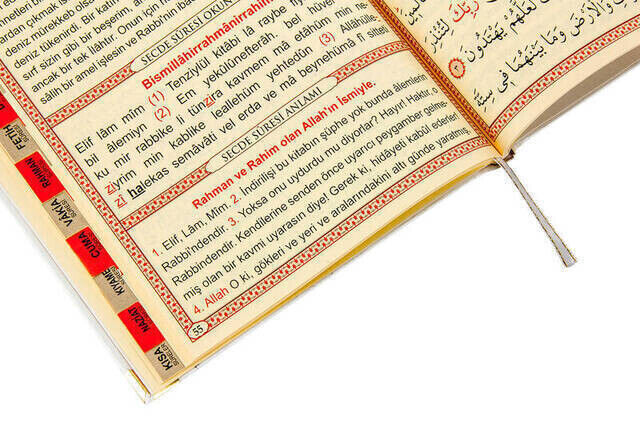 deniz mürekkep olsa
deniz tükenirdi. Bir katın
sırf sizin gibi bir beşerim, an
ancak bir tek ilâhtır. Onun için
sâlih bir amel işlesin ve Rabbi'n ib
SECDE SÛRESİ OKUN
Bismillâhirrahmânirrahîm
Elif lâm mîm (1) Tenzîylül kitâbi lâ raybe
bil âlemiyn (2) Em yekûlûnefterâh. bel hüvel
ku mir rabbike li tünzira kavmem mâ etâhüm min ne
ziyrim min kablike leallehüm yehtedûn (3) Allâhülle-
zî halekas semâvâti vel erda ve mâ beynehümâ fî sitteti
SECDE SÛRESİ ANLAMI
Rahman ve Rahim olan Allah'ın İsmiyle.
1. Elif, Lâm, Mîm. 2. İndirilişi bu kitabın şüphe yok bunda âlemlerin
Rabbi'ndendir. 3. Yoksa onu uydurdu mu diyorlar? Hayır! Haktır, o
Rabbindendir. Kendilerine senden önce uyarıcı peygamber gelme-
miş olan bir kavmi uyarasın diye! Gerek ki, hidâyeti kabûl ederler!
4. Allah O ki, gökleri ve yeri ve aralarındakini altı günde yaratmış,
55
FETİH
RAHMAN
VAKIA
CUMA
KIYAME
NAZİAT
KISA
SÛRELER
رَبِّكَ لِتُنْذِرَ
لَعَلَّهُمْ يَهْتَدُونَ
وَالْأَرْضَ وَمَا بَيْنَهُمَا فِي سِتَّةِ